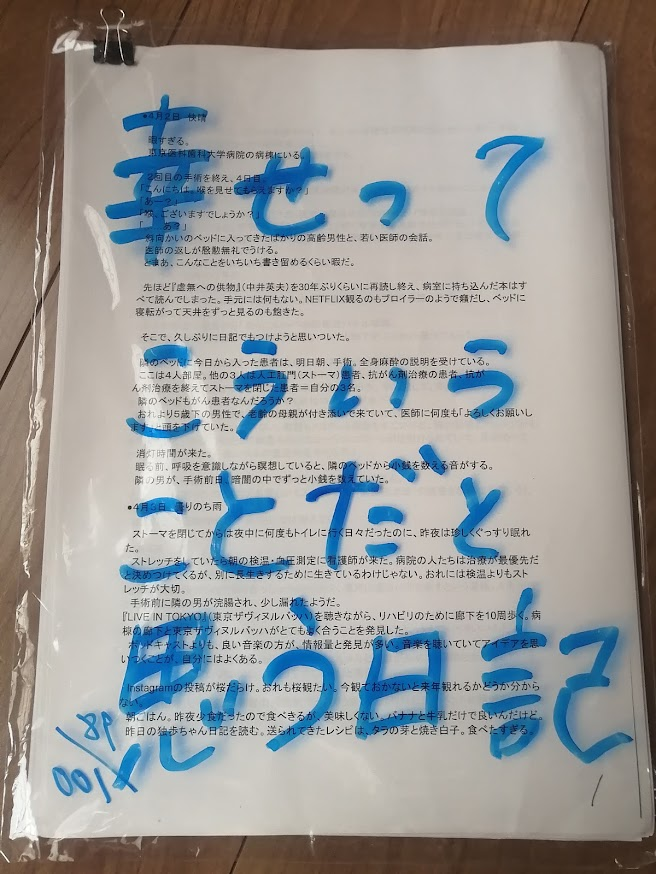 幸せって
こういう
ことだと
思う日記
89/100
●4月2日　快晴
暇すぎる。
東京医科歯科大学病院の病棟にいる。
2回目の手術を終え、4日目。
「こんにちは。喉を見せてもらえますか？」
「あー？」
「喉、ございますでしょうか？」
斜向かいのベッドに入ってきたばかりの高齢男性と、若い医師の会話。
医師の返しが慇懃無礼でうける。
とまあ、こんなことをいちいち書き留めるくらい暇だ。
先ほど『虚無への供物』（中井英夫）を30年ぶりくらいに再読し終え、病室に持ち込んだ本はす
べて読んでしまった。手元には何もない。NETFLIX観るのもブロイラーのようで癪だし、ベッドに
寝転がって天井をずっと見るのも飽きた。
そこで、久しぶりに日記でもつけようと思いついた。
隣のベッドに今日から入った患者は、明日朝、手術。全身麻酔の説明を受けている。
ここは4人部屋。他の3人は人工肛門（ストーマ）患者、抗がん剤治療の患者、抗が
ん剤治療を終えてストーマを閉じた患者＝自分の3名。
隣のベッドもがん患者なんだろうか？
おれより5歳下の男性で、老齢の母親が付き添いで来ていて、医師に何度も「よろしくお願いし
ます」と頭を下げていた。
消灯時間が来た。
眠る前、呼吸を意識しながら瞑想していると、隣のベッドから小銭を数える音がする。
隣の男が、手術前日、暗闇の中でずっと小銭を数えていた。
●4月3日　曇りのち雨
ストーマを閉じてからは夜中に何度もトイレに行く日々だったのに、昨夜は珍しくぐっすり眠れ
た。
ストレッチをしていたら朝の検温・血圧測定に看護師が来た。病院の人たちは治療が最優先だ
と決めつけてくるが、別に長生きするために生きているわけじゃない。おれには検温よりもスト
レッチが大切。
手術前に隣の男が浣腸され、少し漏れたようだ。
『LIVE IN TOKYO』（東京ザヴィヌルバッハ）を聴きながら、リハビリのために廊下を10周歩く。病
棟の廊下と東京ザヴィヌルバッハがとてもよく合うことを発見した。
ポッドキャストよりも、良い音楽の方が、情報量と発見が多い。音楽を聴いていてアイデアを思
いつくことが、自分にはよくある。
Instagramの投稿が桜だらけ。おれも桜観たい。今観ておかないと来年観れるかどうか分から
ない。
朝ごはん。昨夜少食だったので食べきるが、美味しくない。バナナと牛乳だけで良いんだけど。
昨日の独歩ちゃん日記を読む。送られてきたレシピは、タラの芽と焼き白子。食べたすぎる。
1